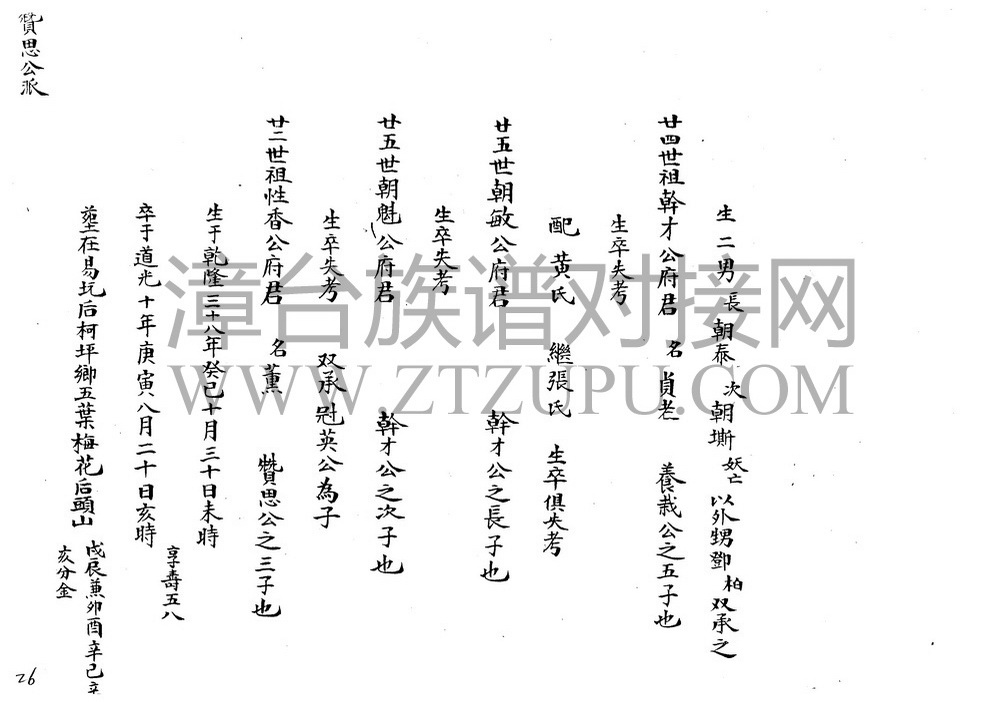 生二男 長朝泰 次朝塹 妖亡 以外甥鄧柏双承之
廿四世祖幹才公府君 名貞老 養裁公之五子也
生卒失考
配黃氏 繼張氏 生卒俱失考
廿五世朝敏公府君 幹才公之長子也
生卒失考
廿五世朝魁公府君 幹才公之次子也
生卒失考 双承冠英公為子
廿二世祖性香公府君 名薰 贊思公之三子也
生于乾隆三十八年癸巳十月三十日未時
卒于道光十年庚寅八月二十日亥時 享壽五八
在易坑后柯坪鄉五葉梅花后頭山 戌辰兼卯酉辛己辛
亥分金
贊思公派
26
漳台族谱对接网
WWW.ZTZUPU.COM